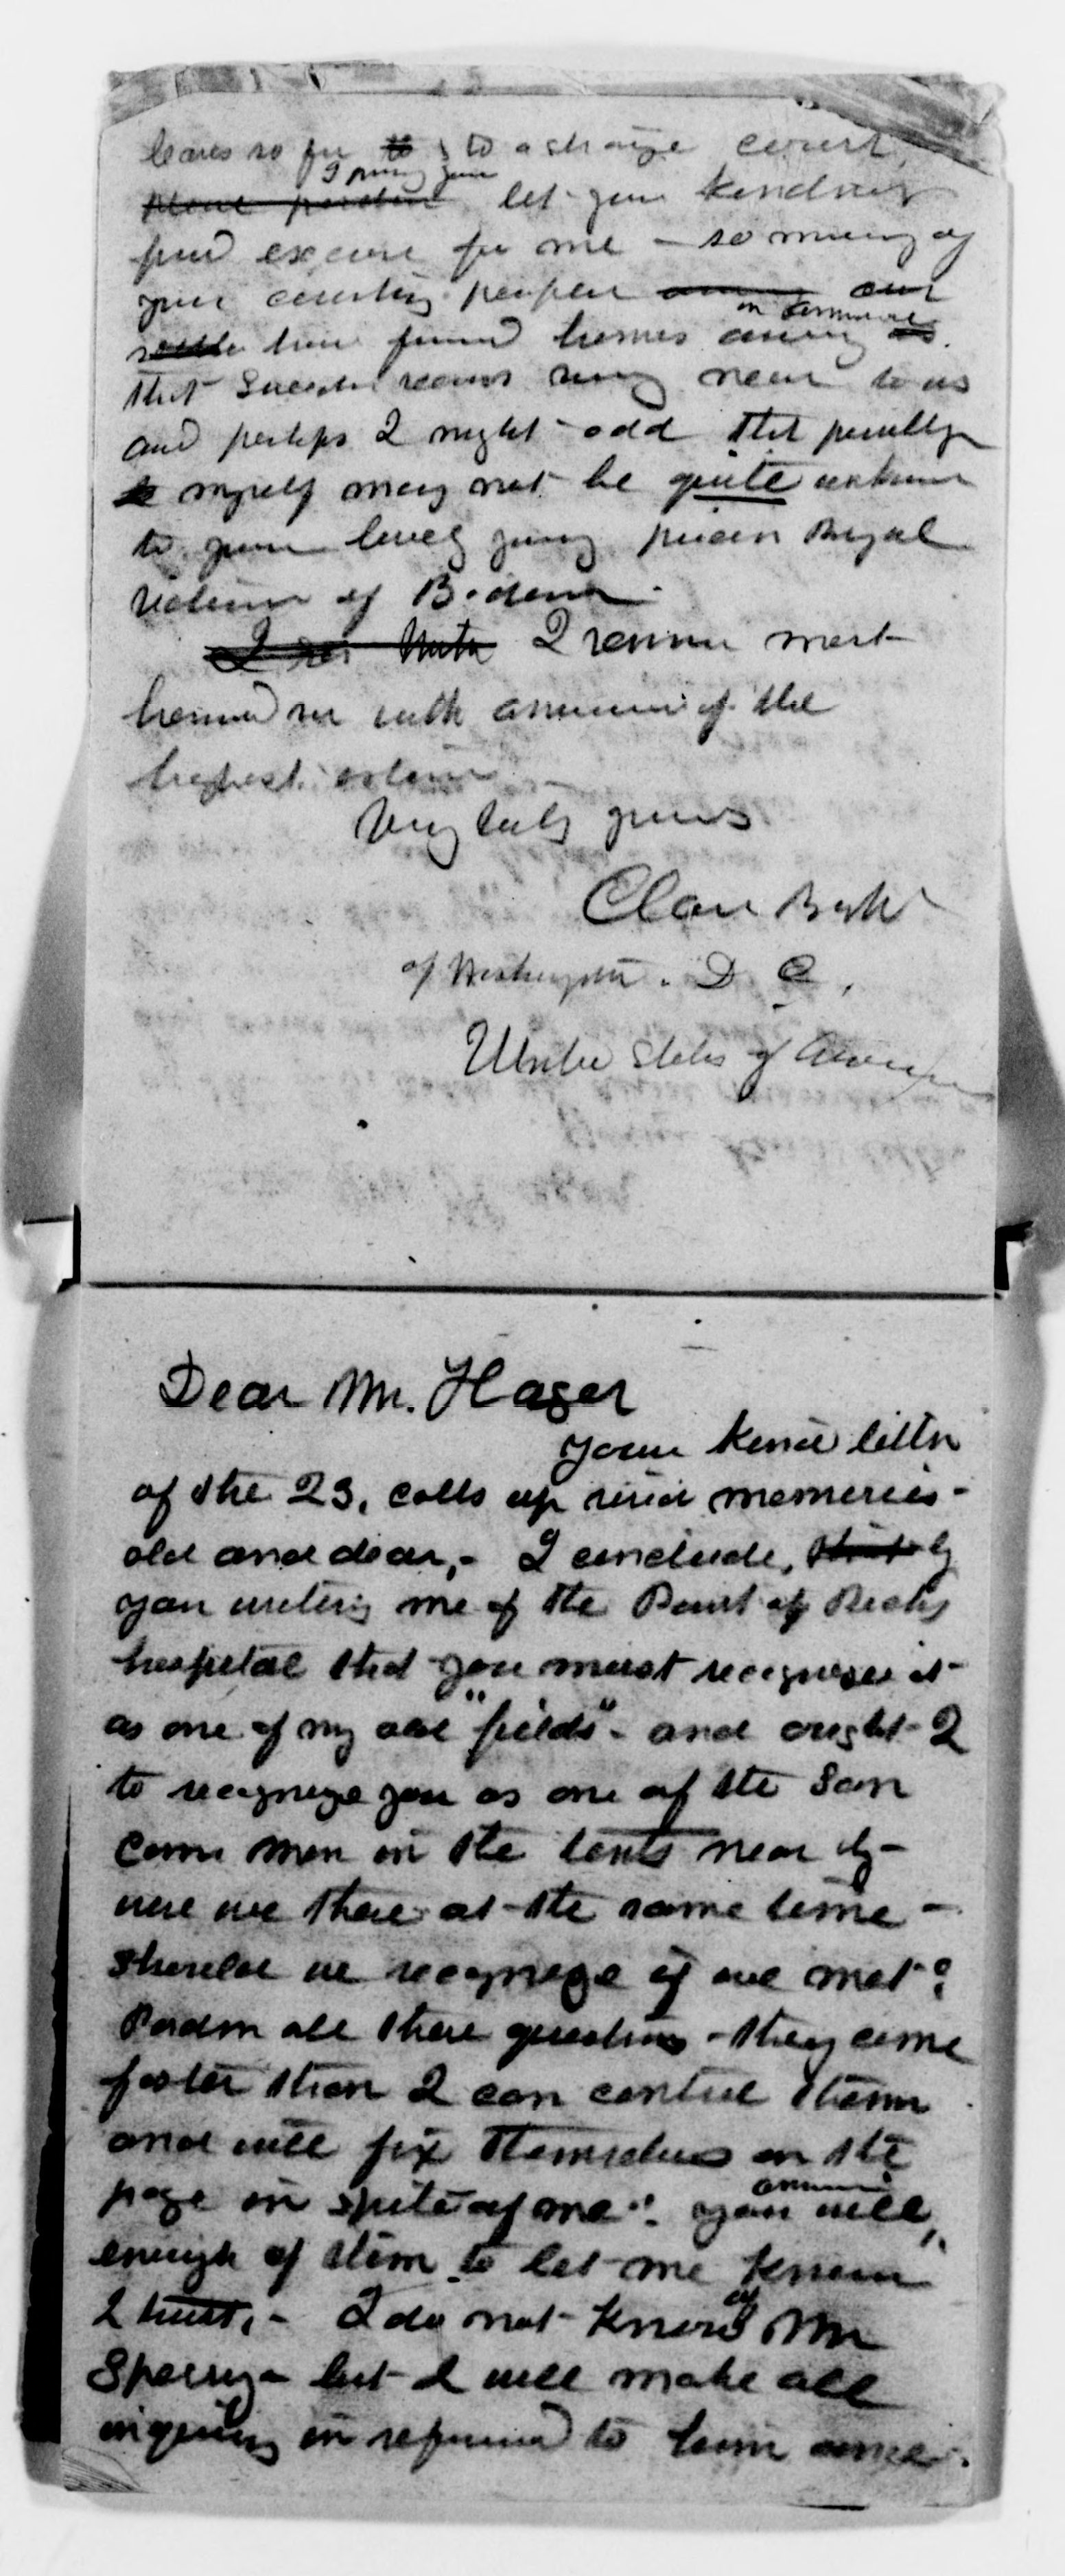 leaves so far to to a strange court,
please pardon I pray you let your kindness
find excuse for me - so many of
your country people our
have found homes among us
that Sweden seems very near to us
and perhaps I might add that possibly
to myself may not be quite unknown
to your lovely young Royal
Victoria of Baden.
I remain most
honored sir with assurance of the
highest esteem
Very truly yours
Clara Barton
of Washington. D C,
United States of America
Dear Mr. Hager
Your kind letter
of the 23, calls up vivid memories -
old and dear, - I conclude, that by
your writing me of the Point of Rocks
hospital that you must recognize it
as one of my old "fields" - and ought I
to recognize you as one of the San
Com men in the tents near by -
were we there at the same time -
should we recognize if we met?
Pardon all these questions - they come
faster than I can control them
and will fix themselves on the
page in spite of me. You will answer
enough of them to let me know
I trust, - I do not know of Mr
Sperry - but I will make all
inquiry in regard to him